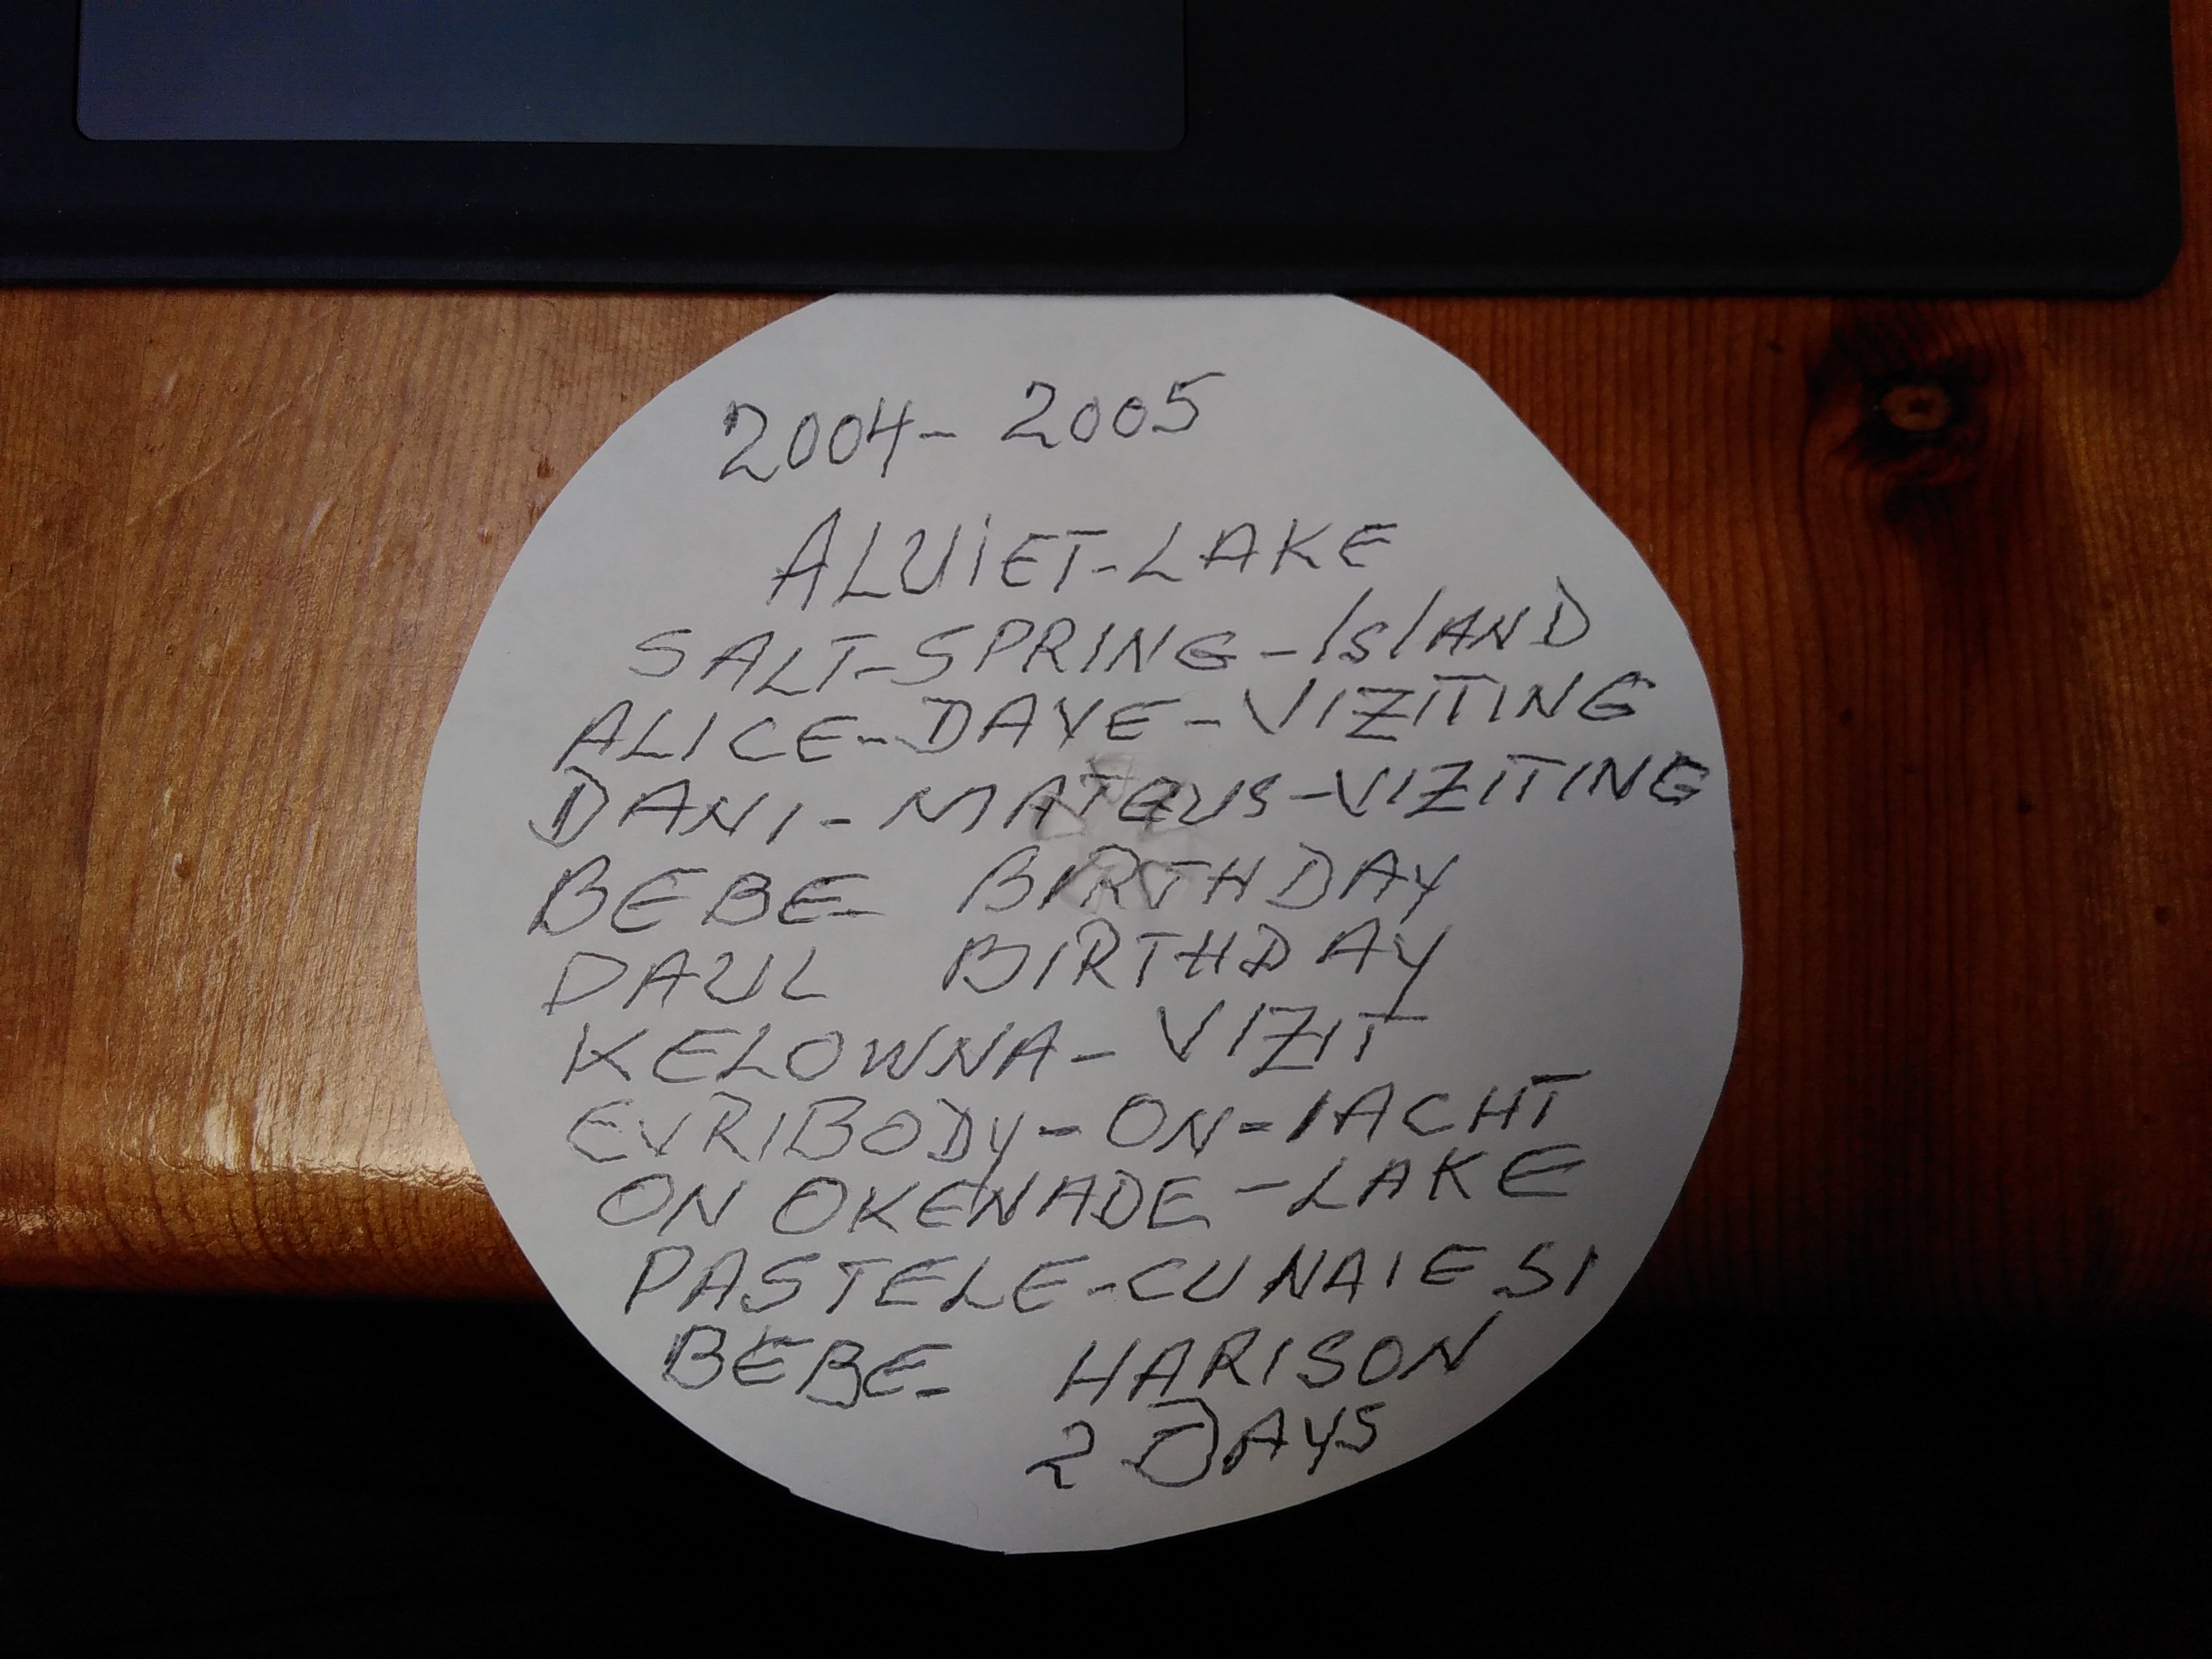 2004- 2005
ALUiET-LAKE
SALT-SPRING-ISLAND
ALICE-DAVE-VIZITING
DANI-MATEUS-VIZITING
BEBE- BIRTHDAY
PAUL BIRTHDAY
KELOWNA- VIZIT
EVRIBODY-ON-IACHT
ON OKENADE-LAKE
PASTELE-CU NAIE SI
BEBE- HARISON
2 DAYS